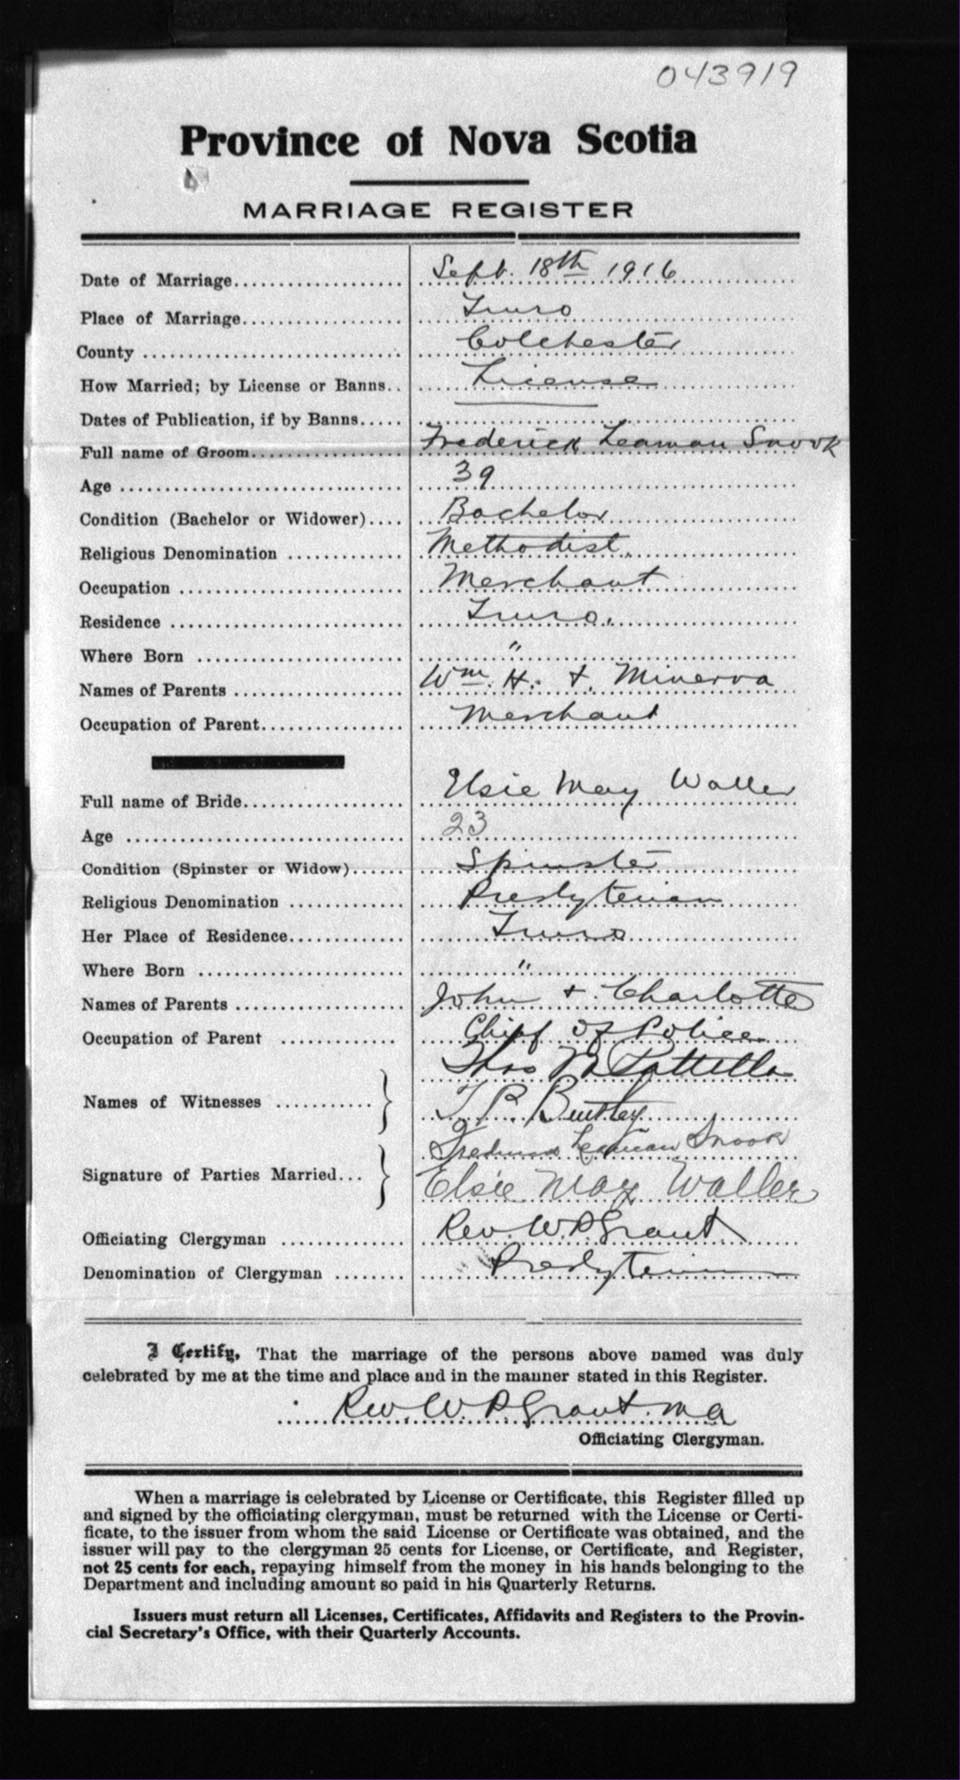 043919
Province of Nova Scotia
MARRIAGE REGISTER
Date of Marriage.................. Sept. 18th 1916
Place of Marriage.................. Truro
County .................. Colchester
How Married; by License or Banns.. License
Dates of Publication, if by Banns.....
Full name of Groom.................. Frederick Leaman Snook
Age .................. 39
Condition (Bachelor or Widower).... Bachelor
Religious Denomination .................. Methodist.
Occupation .................. Merchant
Residence .................. Truro.
Where Born .................. "
Names of Parents .................. Wm. H. + Minerva
Occupation of Parent.................. Merchant
Full name of Bride.................. Elsie May Waller
Age .................. 23
Condition (Spinster or Widow)...... Spinster
Religious Denomination ............ Presbyterian
Her Place of Residence............. Truro
Where Born .................. "
Names of Parents .................. John + Charlotte
Occupation of Parent ............. Chief of Police
Thos M Pattillo
Names of Witnesses ............
T. P. Bentley
Frederick Leaman Snook
Signature of Parties Married...
Elsie May Waller
Officiating Clergyman ............. Rev. W. P. Grant
Denomination of Clergyman ........ Presbyterian
I Certify, That the marriage of the persons above named was duly
celebrated by me at the time and place and in the manner stated in this Register.
Rev. W. P. Grant. M A
Officiating Clergyman.
When a marriage is celebrated by License or Certificate, this Register filled up
and signed by the officiating clergyman, must be returned with the License or Certi-
ficate, to the issuer from whom the said License or Certificate was obtained, and the
issuer will pay to the clergyman 25 cents for License, or Certificate, and Register,
not 25 cents for each, repaying himself from the money in his hands belonging to the
Department and including amount so paid in his Quarterly Returns.
Issuers must return all Licenses, Certificates, Affidavits and Registers to the Provin-
cial Secretary's Office, with their Quarterly Accounts.